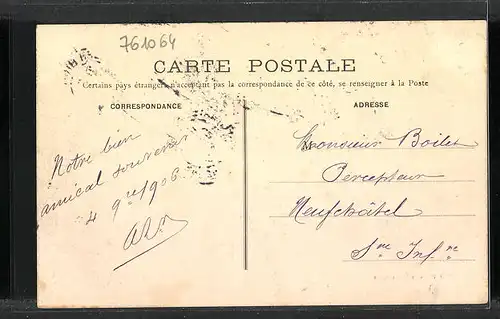 761064
CARTE POSTALE
Certains pays étrangers n'acceptant pas la correspondance de ce côté, se renseigner à la Poste
CORRESPONDANCE
ADRESSE
Notre bien
amical souvenir
4 9re 1906
Monsieur Boilet
Percepteur
Neufchâtel
Sne Infre